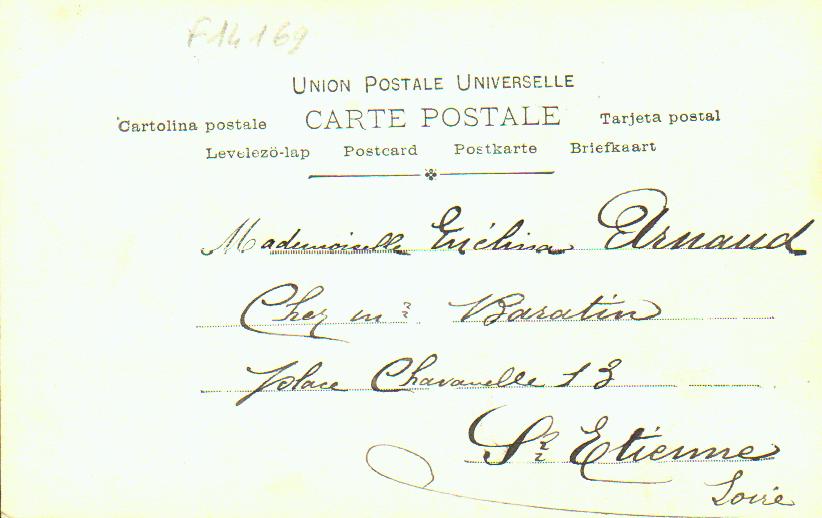 F14169
UNION POSTALE UNIVERSELLE
Cartolina postale CARTE POSTALE Tarjeta postal
Levelezö-lap Postcard Postkarte Briefkaart
Mademoiselle Enélina Arnaud
Chez mr Baratin
place Chavanelle 13
St Etienne
Loire